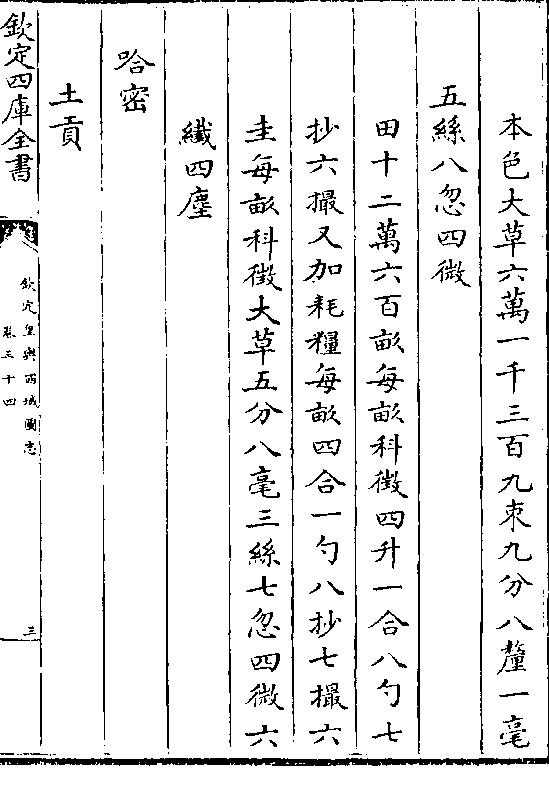 本色大草六萬一千三百九束九分八釐一毫
五絲八忽四微
田十二萬六百畝每畝科徴四升一合八勺七
抄六撮又加耗糧每畝四合一勺八抄七撮六
圭每畝科徴大草五分八毫三絲七忽四微六
纖四塵
哈密
土貢
欽定四庫全書
欽定皇輿西域圖志
卷三十四
三